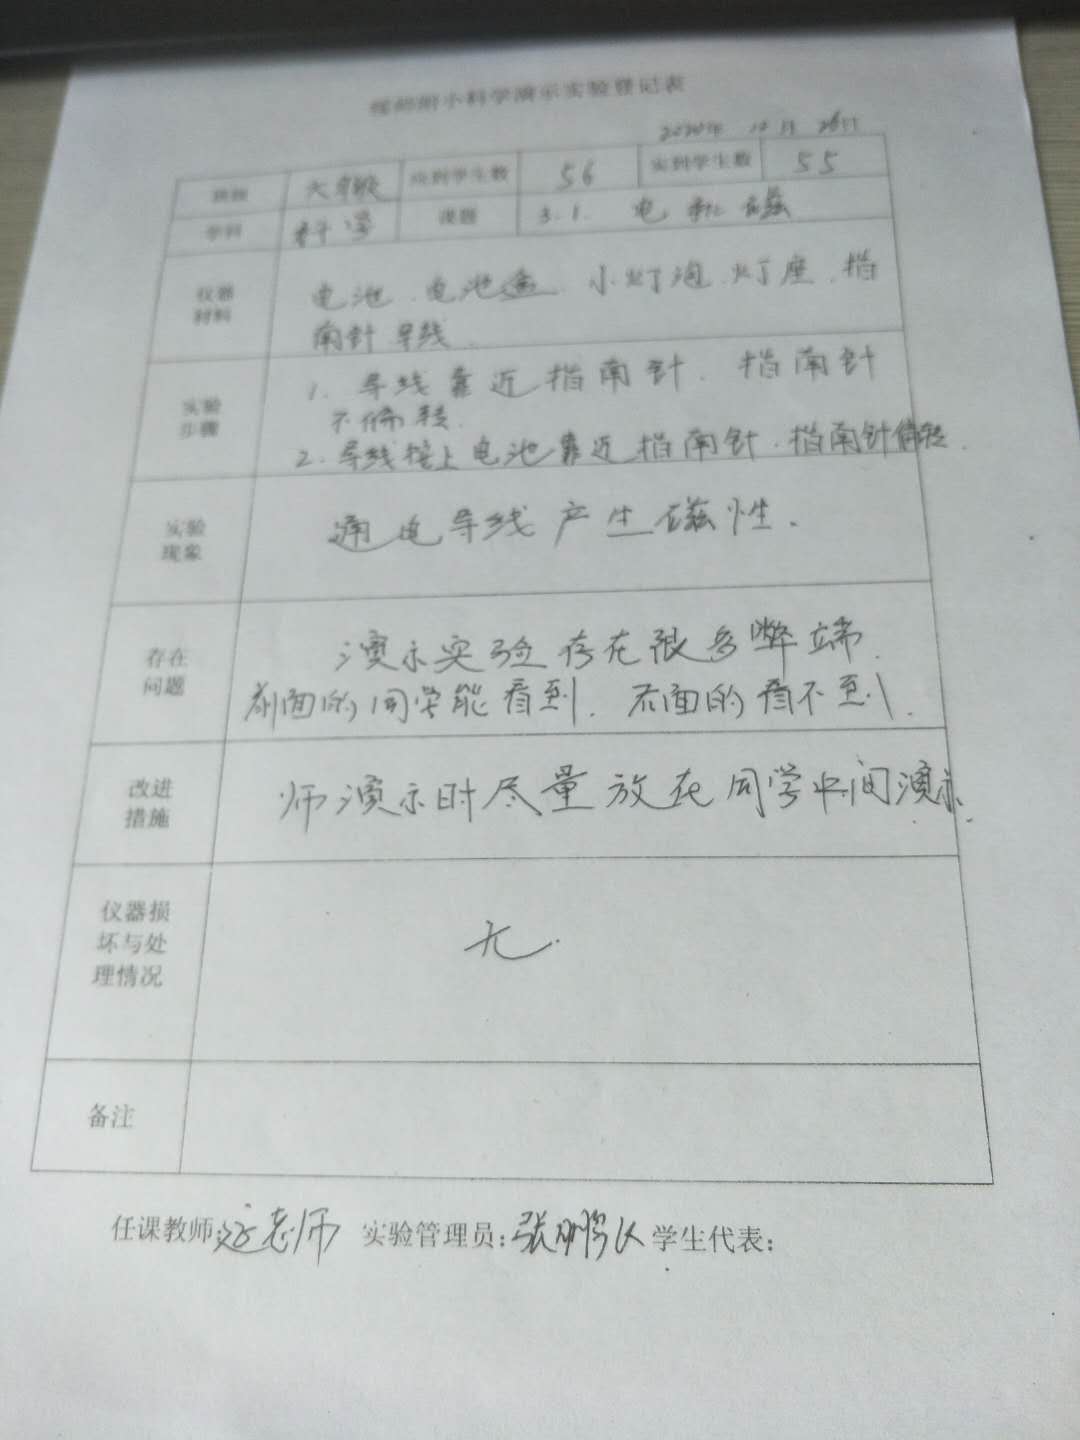 附小科学演示实验登记表
2020年 12月 26日
班级 应到学生数 56 实到学生数 55
学科 科学 课题 3.1. 电和磁
仪器
材料
电池、电池盒、小灯泡、灯座、指
南针 导线.
实验
步骤
1. 导线靠近指南针. 指南针
不偏转.
2. 导线接上电池靠近指南针. 指南针偏转.
实验
现象
通电导线产生磁性.
存在
问题
演示实验存在很多弊端.
前面的同学能看到. 后面的看不到.
改进
措施
师演示时尽量放在同学中间演示.
仪器损
坏与处
理情况
无.
备注
任课教师: 老师 实验管理员: 张 学生代表: